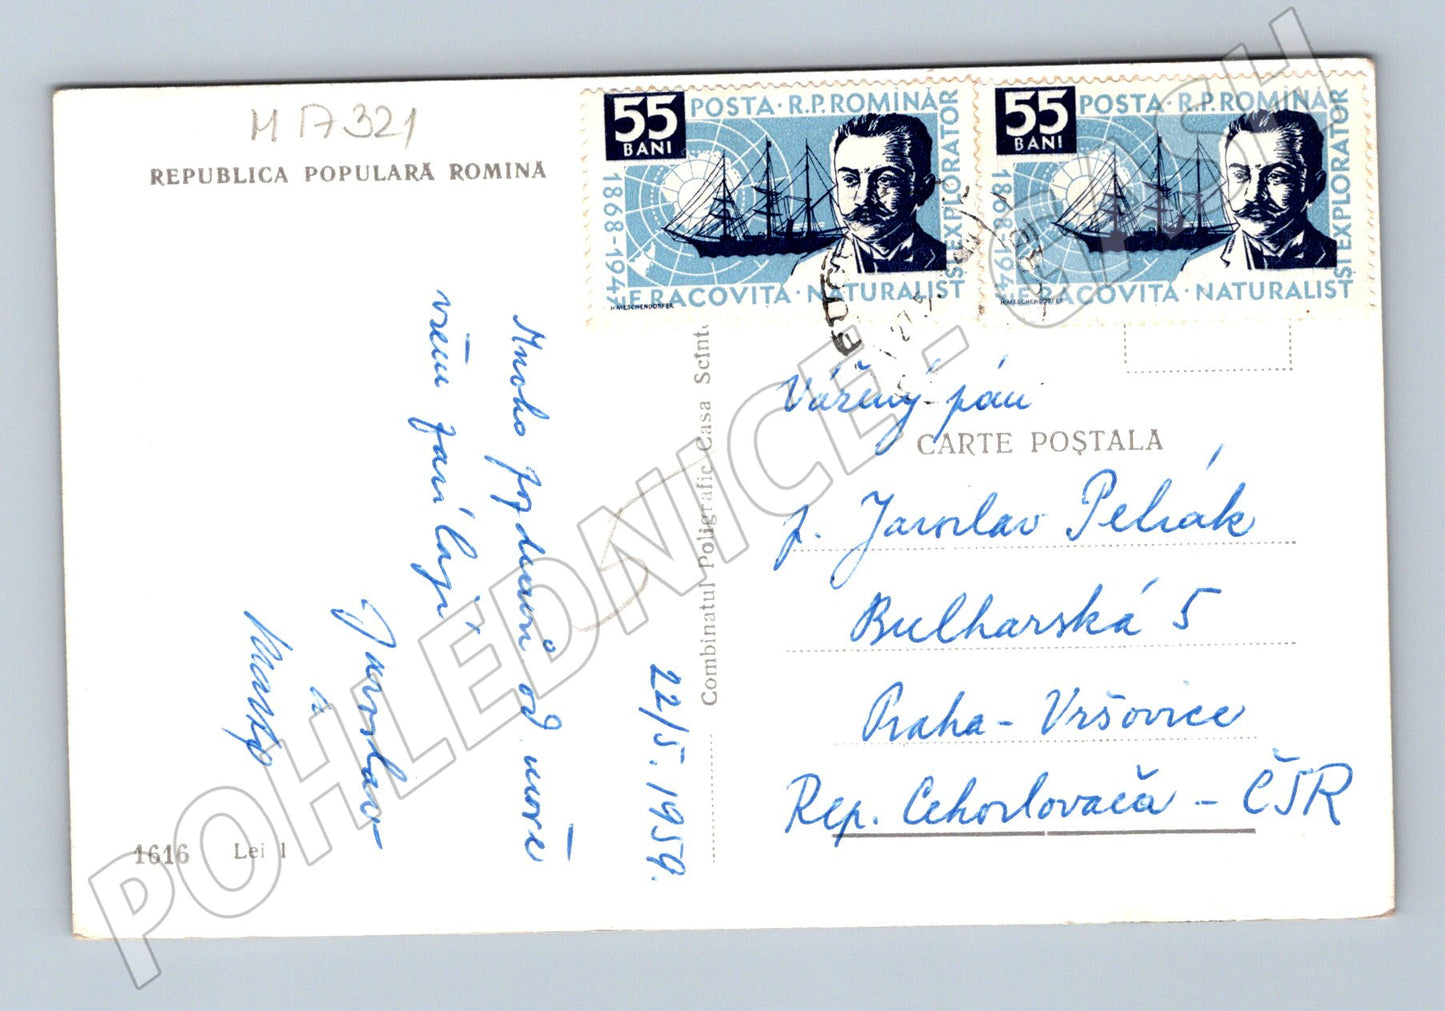 M 17321
REPUBLICA POPULARĂ ROMINĂ
55 BANI
POSTA · R.P.ROMINĂ
1868-1947
EXPLORATOR
E RACOVIȚĂ · NATURALIST
H MESCHENDORFER
55 BANI
POSTA · R.P.ROMINĂ
1868-1947
EXPLORATOR
E RACOVIȚĂ · NATURALIST
H MESCHENDORFER
Mnoho pozdravů od moře
všem zasílají
Jaroslav
a
22/5. 1959.
Combinatul Poligrafic Casa Scînt
Vážený pán
CARTE POȘTALĂ
p. Jaroslav Pelrák
Bulharská 5
Praha - Vršovice
Rep. Čehoslovacă - ČSR
1616 Lei 1
POHLEDNICE - CASH